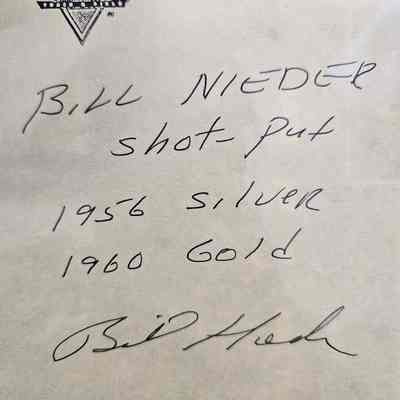 BILL NIEDER
shot-put
1956 silver
1960 Gold